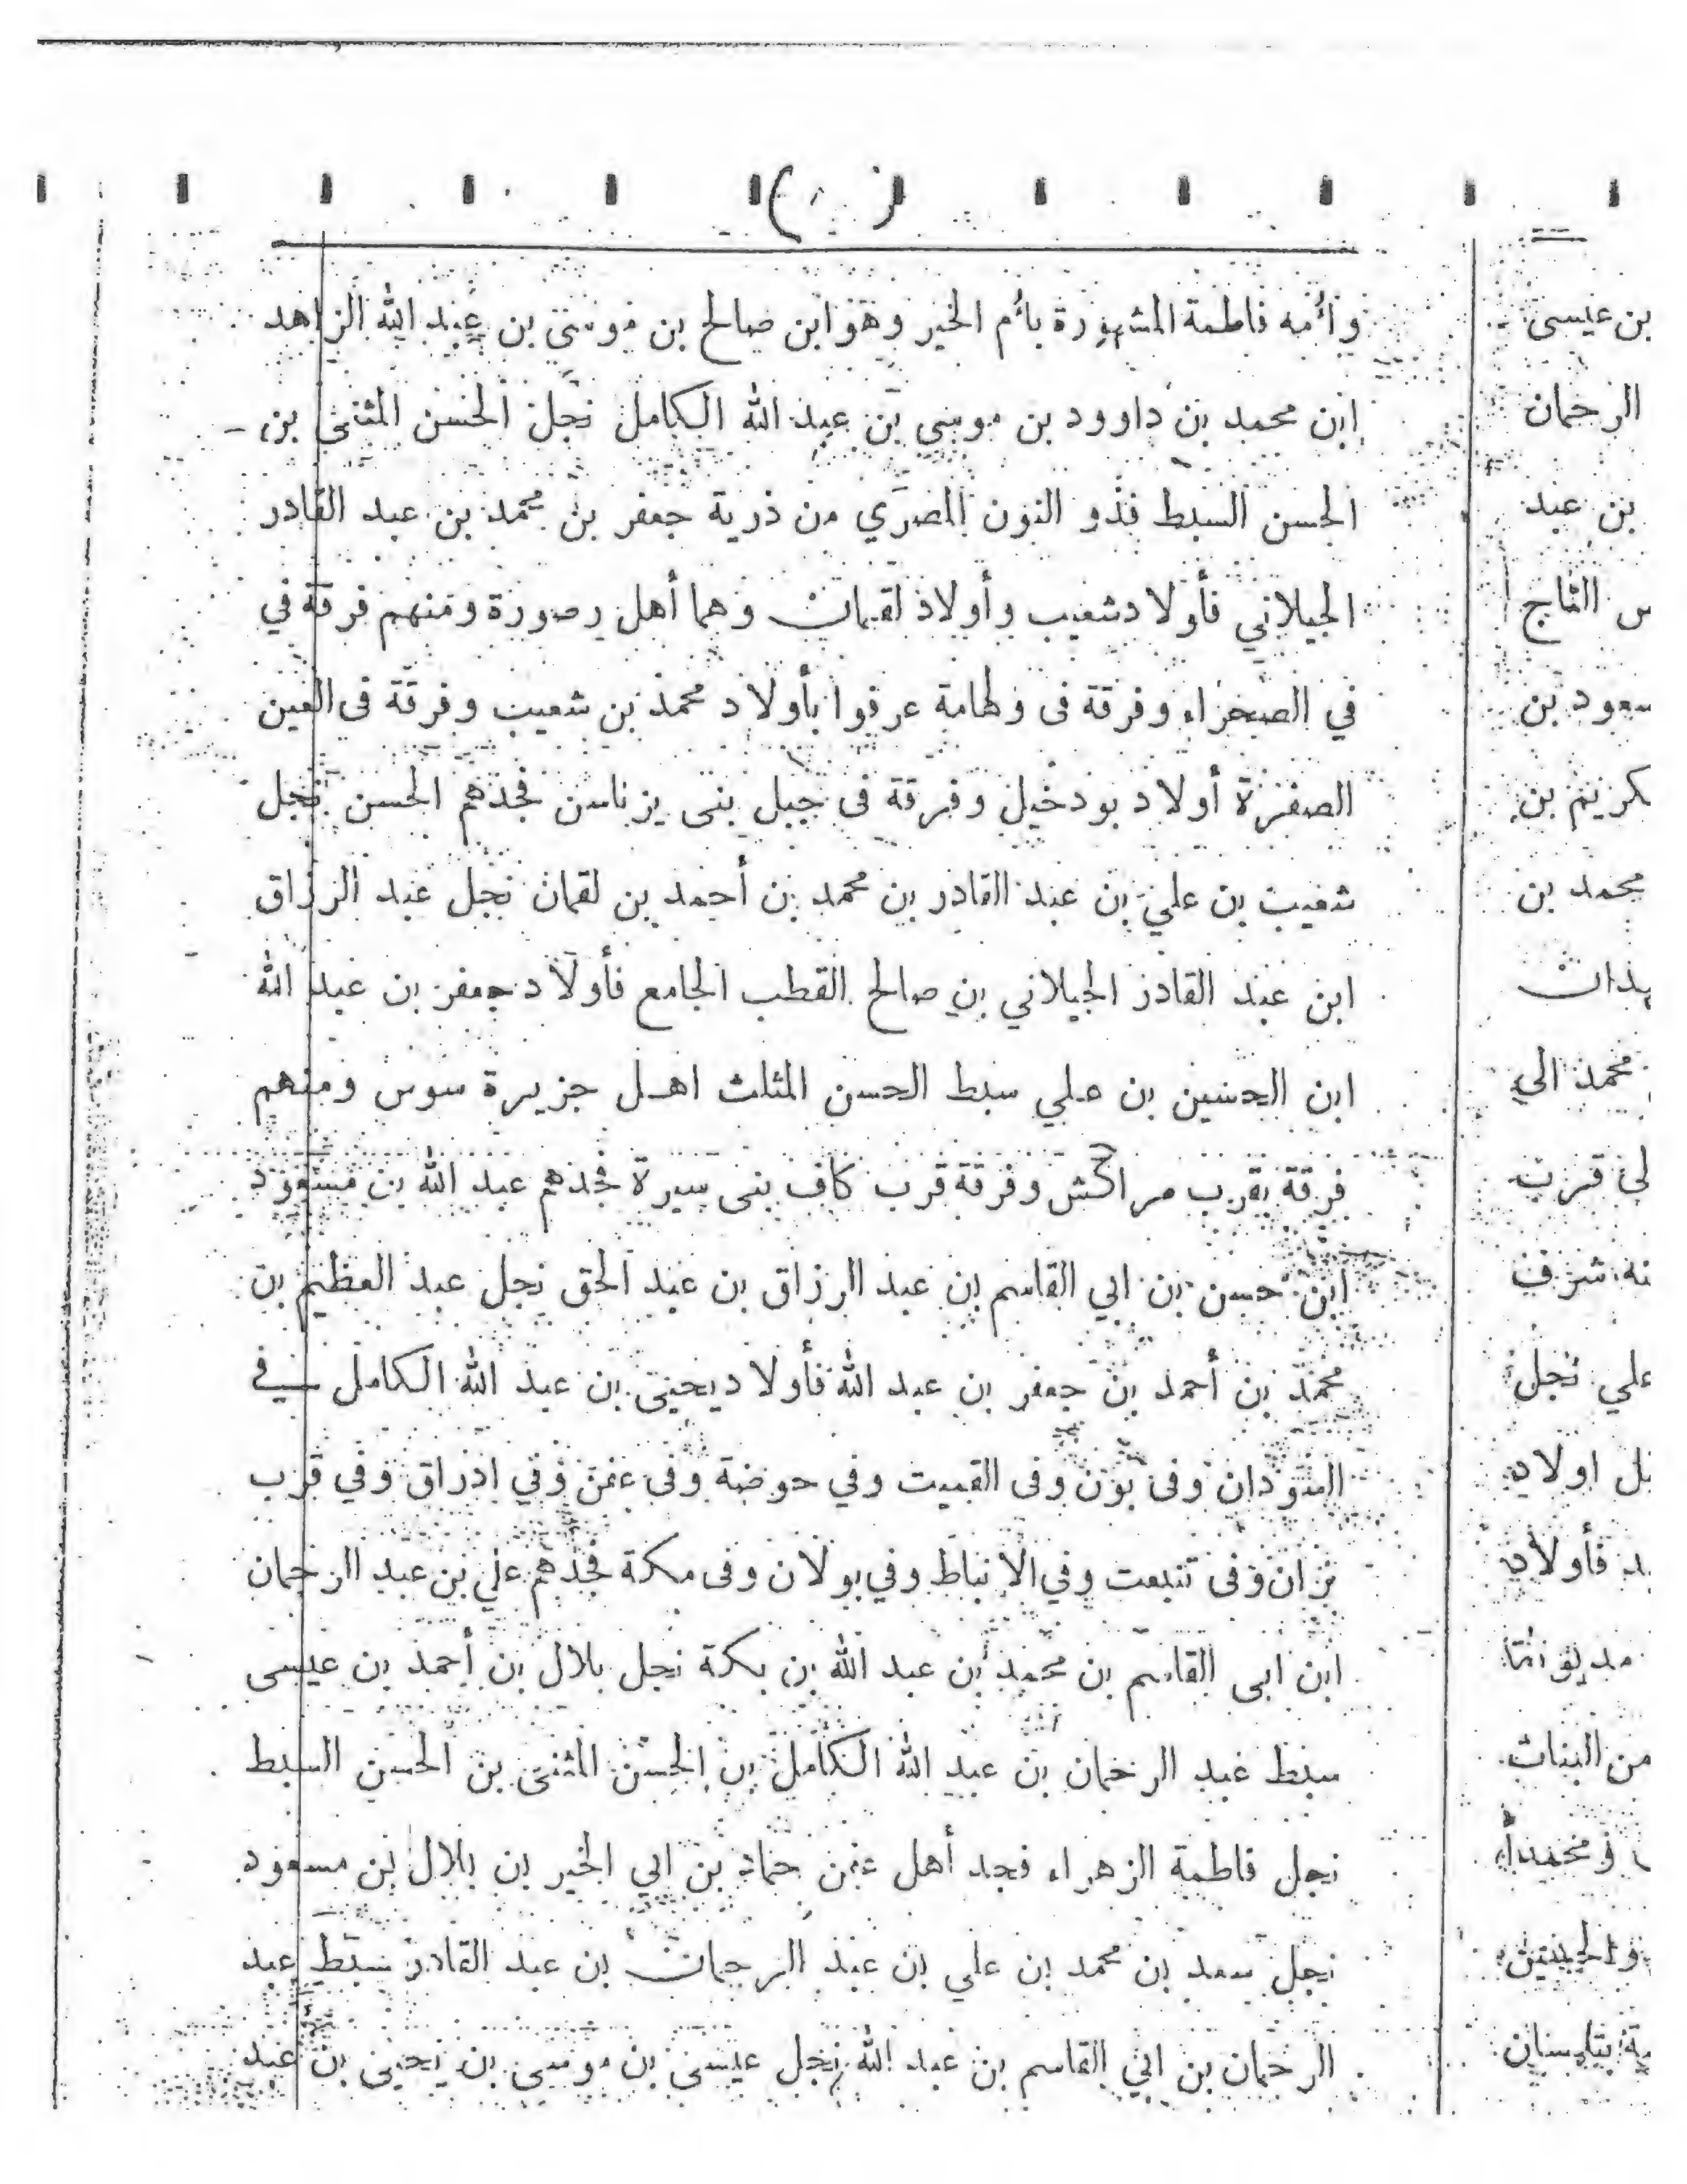 وأمه فاطمة المشهورة بأم الخير وهو ابن صالح بن موسى بن عبد الله الزاهد
ابن محمد بن داوود بن موسى بن عبد الله الكامل نجل الحسن المثنى بن -
الحسن السبط فذو النون المصري من ذرية جعفر بن محمد بن عبد القادر
الجيلاني فأولاد شعيب وأولاد لقمان وهما أهل رصورة ومنهم فرقة في
في الصحراء وفرقة فى وطامة عرفوا بأولاد محمد بن شعيب وفرقة فى العين
الصفرة أولاد بودخيل وفرقة فى جبل بنى يزناسن فجدهم الحسن نجل
شعيب بن علي بن عبد القادر بن محمد بن أحمد بن لقمان نجل عبد الرزاق
ابن عبد القادر الجيلاني بن صالح القطب الجامع فأولاد جعفر بن عبد الله
ابن الحسين بن علي سبط الحسن المثلث اهل جزيرة سوس ومنهم
فرقة بقرب مراكش وفرقة قرب كاف بنى سيرة فجدهم عبد الله بن مسعود
ابن حسن بن ابي القاسم بن عبد الرزاق بن عبد الحق نجل عبد العظيم بن
محمد بن أحمد بن جعفر بن عبد الله فأولاد يحيى بن عبد الله الكامل في
السودان وفى بون وفى القبيت وفي حوضة وفى غمن وفي ادراق وفي قرب
نزان وفى تنبعت وفي الانباط وفي بولان وفى مكرة فجدهم علي بن عبد الرحمان
ابن ابى القاسم بن محمد بن عبد الله بن بكرة نجل بلال بن أحمد بن عيسى
سبط عبد الرحمان بن عبد الله الكامل بن الحسن المثنى بن الحسن السبط
نجل فاطمة الزهراء فجد أهل غمن حماد بن ابي الخير بن بلال بن مسعود
نجل سعد بن محمد بن علي بن عبد الرحمان بن عبد القادر سبط عبد
الرحمان بن ابي القاسم بن عبد الله نجل عيسى بن موسى بن يحيى بن عبد
بن عيسى
الرحمان
بن عبد
التاج
بن
بن
محمد بن
محمد الي
شرف
علي نجل
اولاد
فأولاد
من البنات